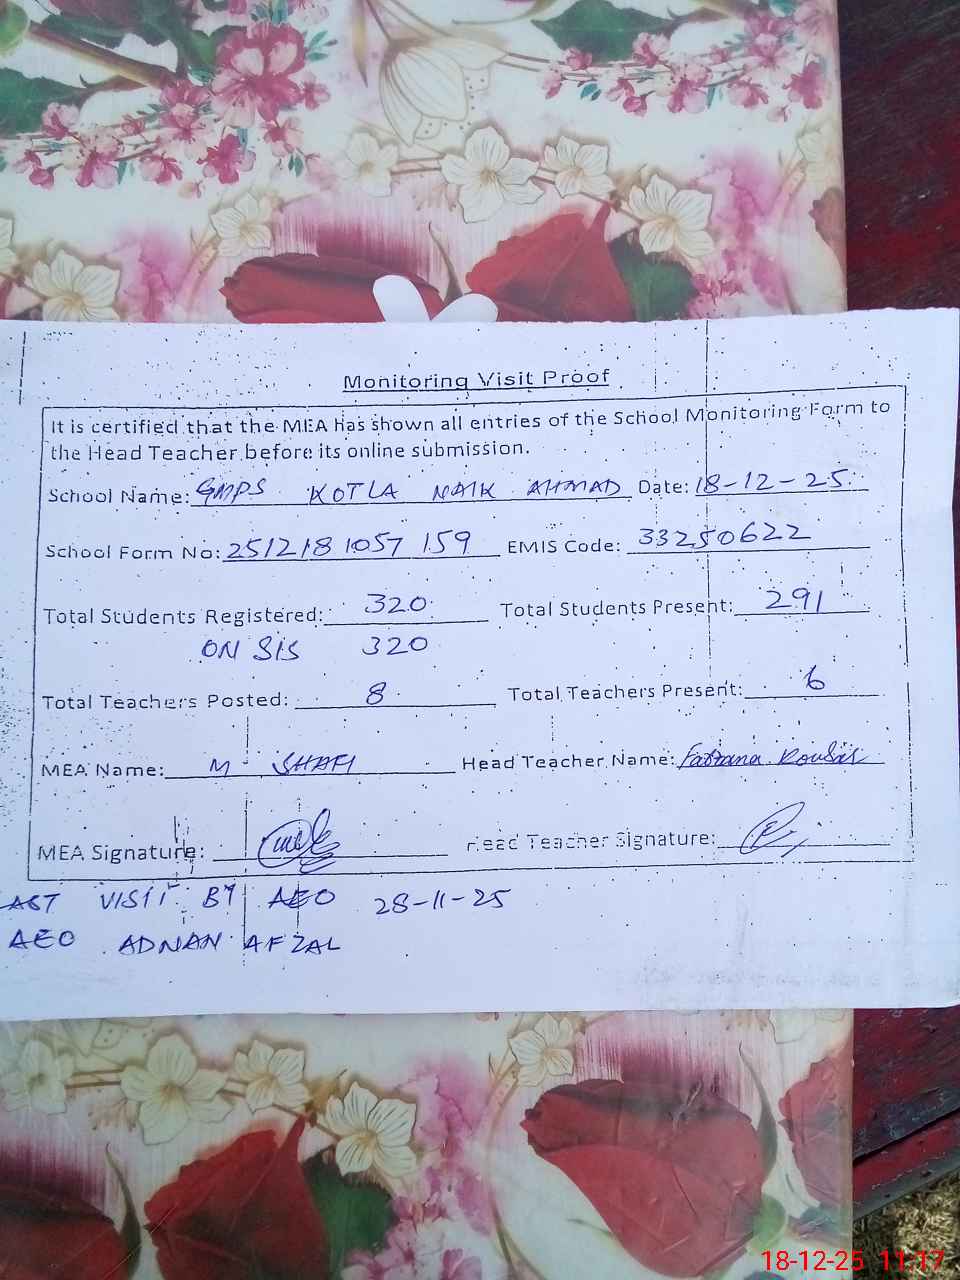 Monitoring Visit Proof
It is certified that the MEA has shown all entries of the School Monitoring Form to
the Head Teacher before its online submission.
School Name: GMPS KOTLA NAIK AHMAD Date: 18-12-25
School Form No: 2512181057159 EMIS Code: 33250622
Total Students Registered: 320 Total Students Present: 291
ON SIS 320
Total Teachers Posted: 8 Total Teachers Present: 6
MEA Name: M SHAFI Head Teacher Name: Farzana
MEA Signature: Head Teacher Signature:
VISIT BY AEO 28-11-25
AEO ADNAN AFZAL
18-12-25 11:17